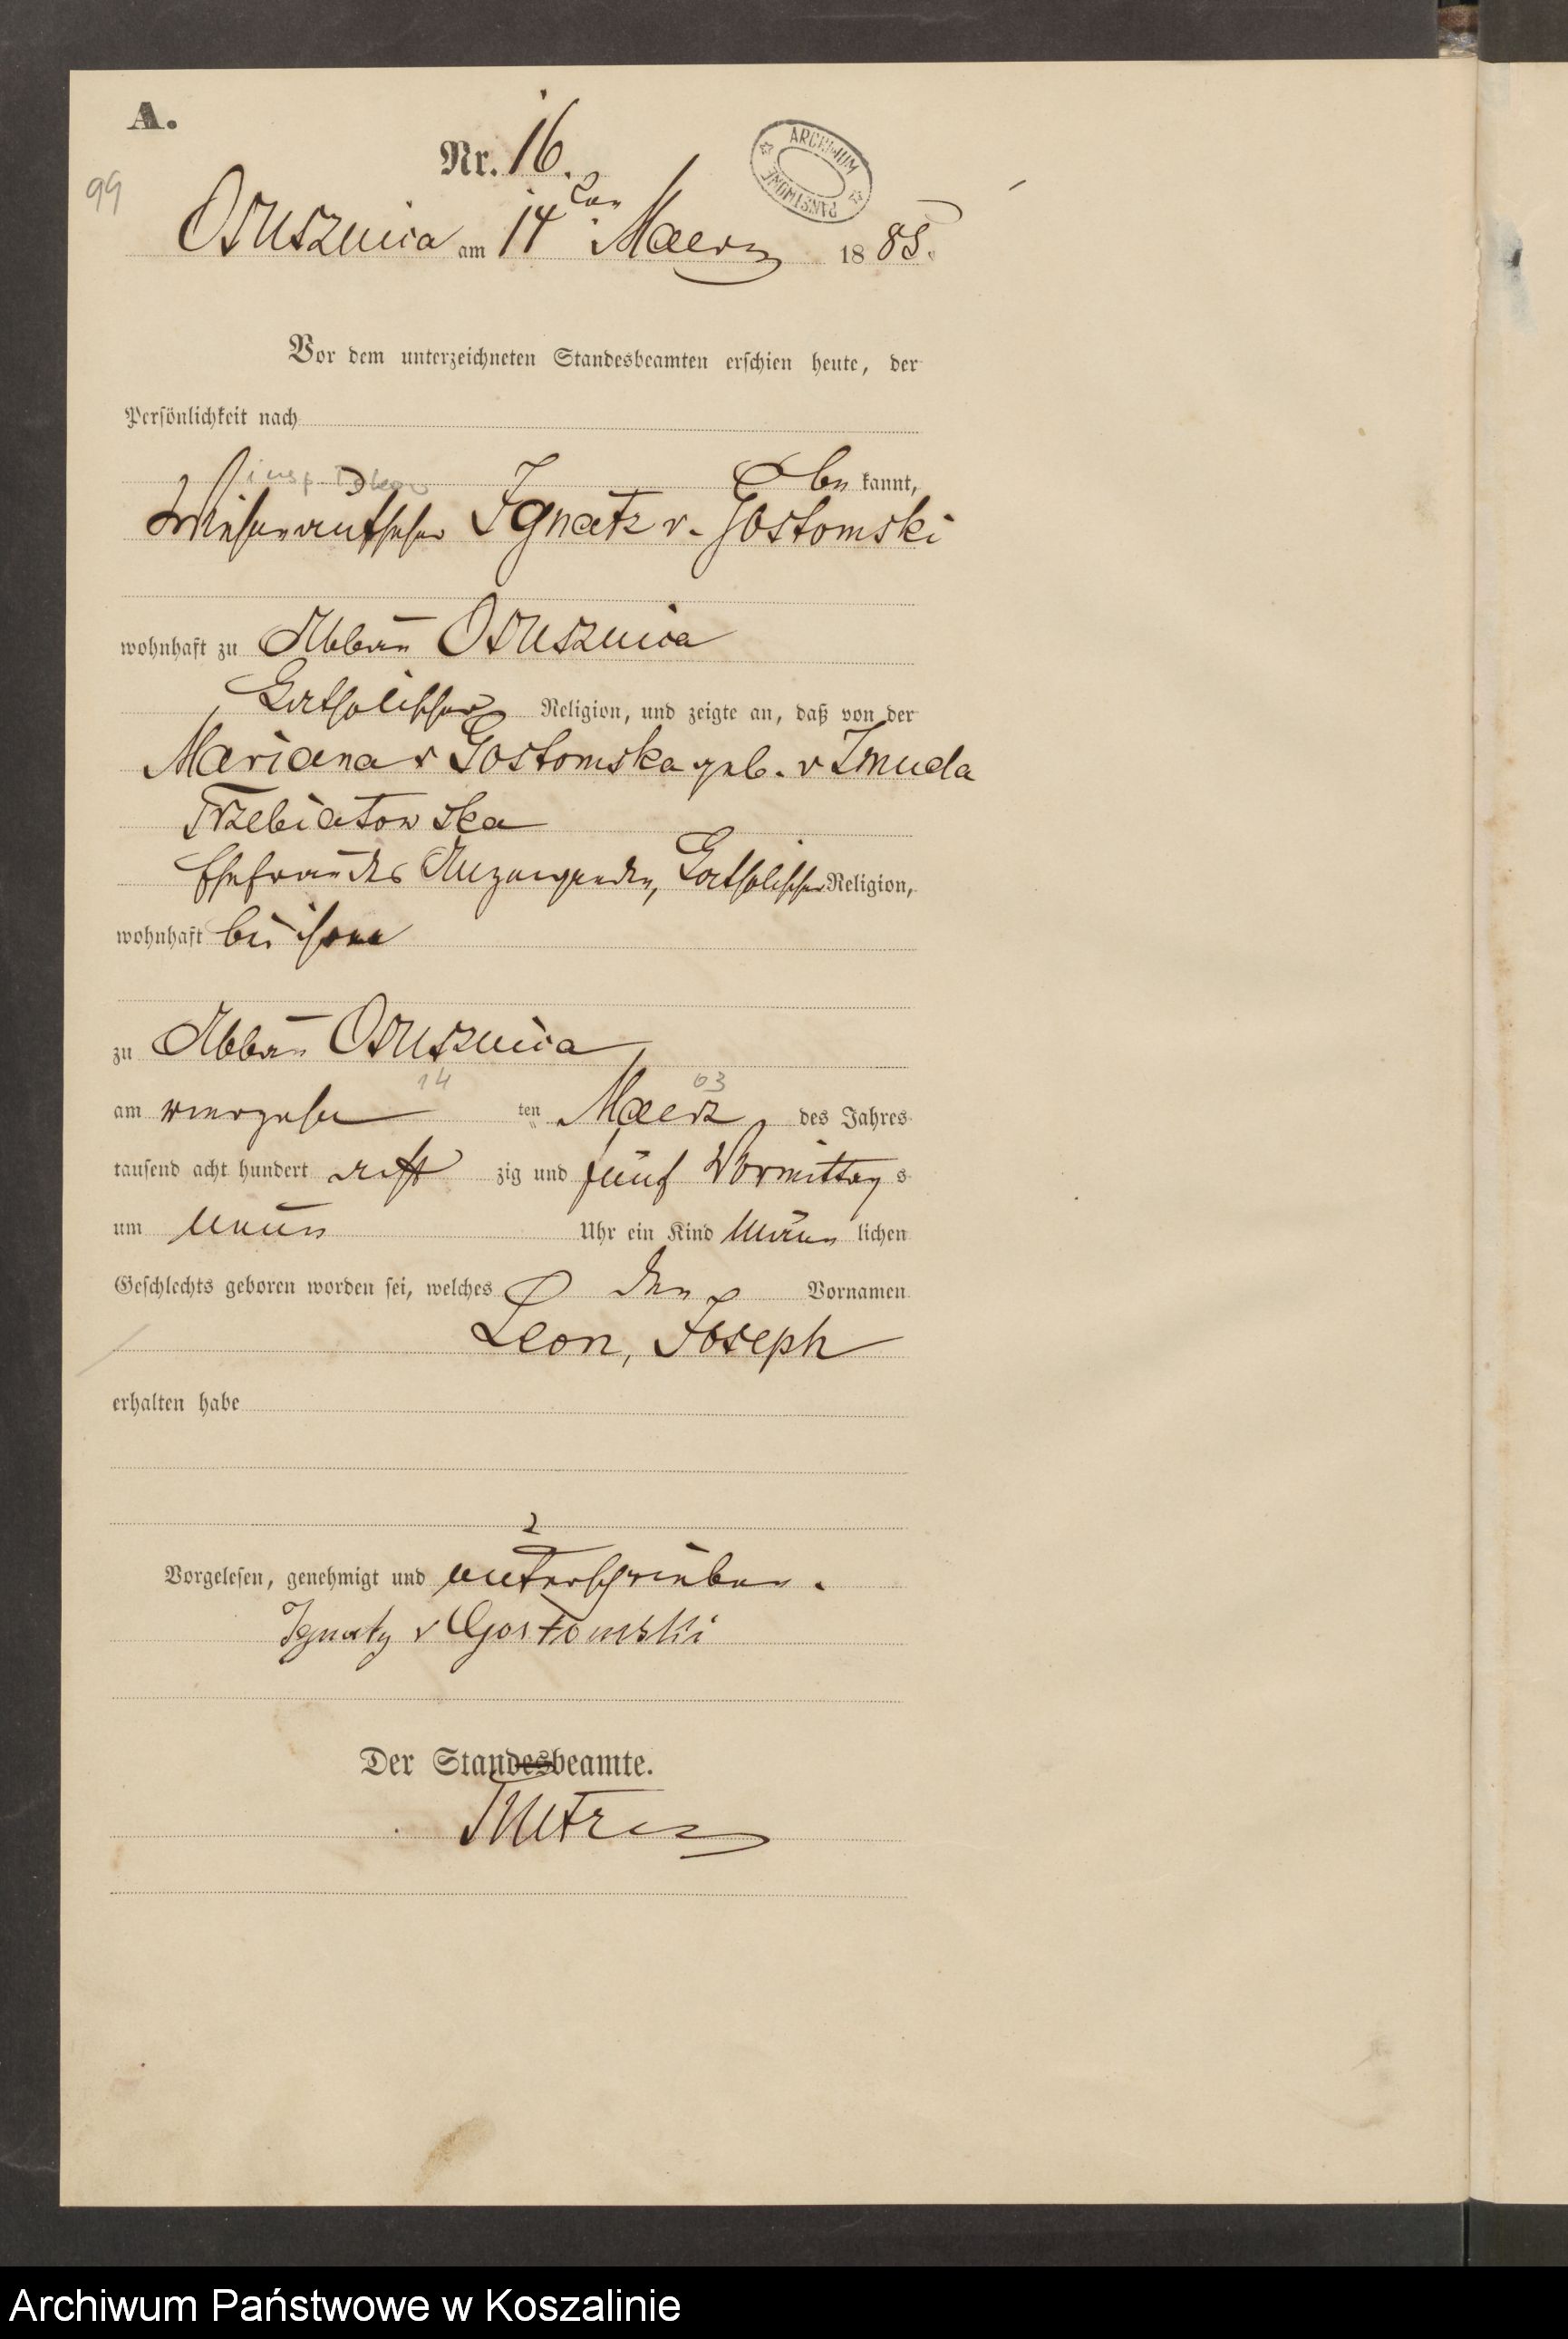 A.
Nr. 16.
ARCHIWUM PAŃSTWOWE
99
Osusznica am 14ten Maerz 1885.
Vor dem unterzeichneten Standesbeamten erschien heute, der
Persönlichkeit nach
be kannt,
Ignatz v. Gostomski
wohnhaft zu Abbau Osusznica
Katholischer Religion, und zeigte an, daß von der
Mariana v Gostomska geb. v Zmuda
Trzebiatowska
Ehefrau des Anzeigenden, Katholischer Religion,
wohnhaft bei ihm
zu Abbau Osusznica
14 03
am vierzehn ten Maerz des Jahres
tausend acht hundert acht zig und fünf Vormittag s
um neun Uhr ein Kind männ lichen
Geschlechts geboren worden sei, welches den Vornamen
Leon, Joseph
erhalten habe
Vorgelesen, genehmigt und unterschrieben.
Ignatz v Gostomski
Der Standesbeamte.
Archiwum Państwowe w Koszalinie